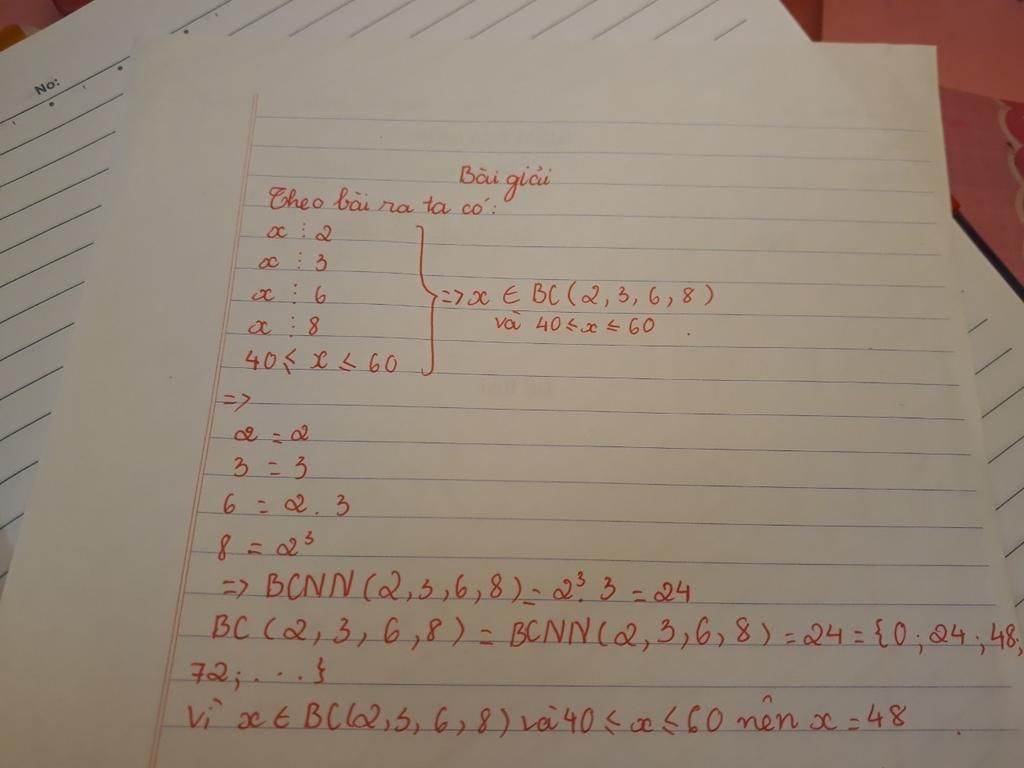 No:
Bài giải
Theo bài ra ta có:
x ⋮ 2
x ⋮ 3
x ⋮ 6
x ⋮ 8
40 ≤ x ≤ 60
=> x ∈ BC(2, 3, 6, 8)
và 40 ≤ x ≤ 60
=>
2 = 2
3 = 3
6 = 2 . 3
8 = 2³
=> BCNN(2,3,6,8) = 2³. 3 = 24
BC(2, 3, 6, 8) = BCNN(2, 3, 6, 8) = 24 = {0 ; 24 ; 48;
72; . . . }
Vì x ∈ BC(2, 3, 6, 8) và 40 ≤ x ≤ 60 nên x = 48 .